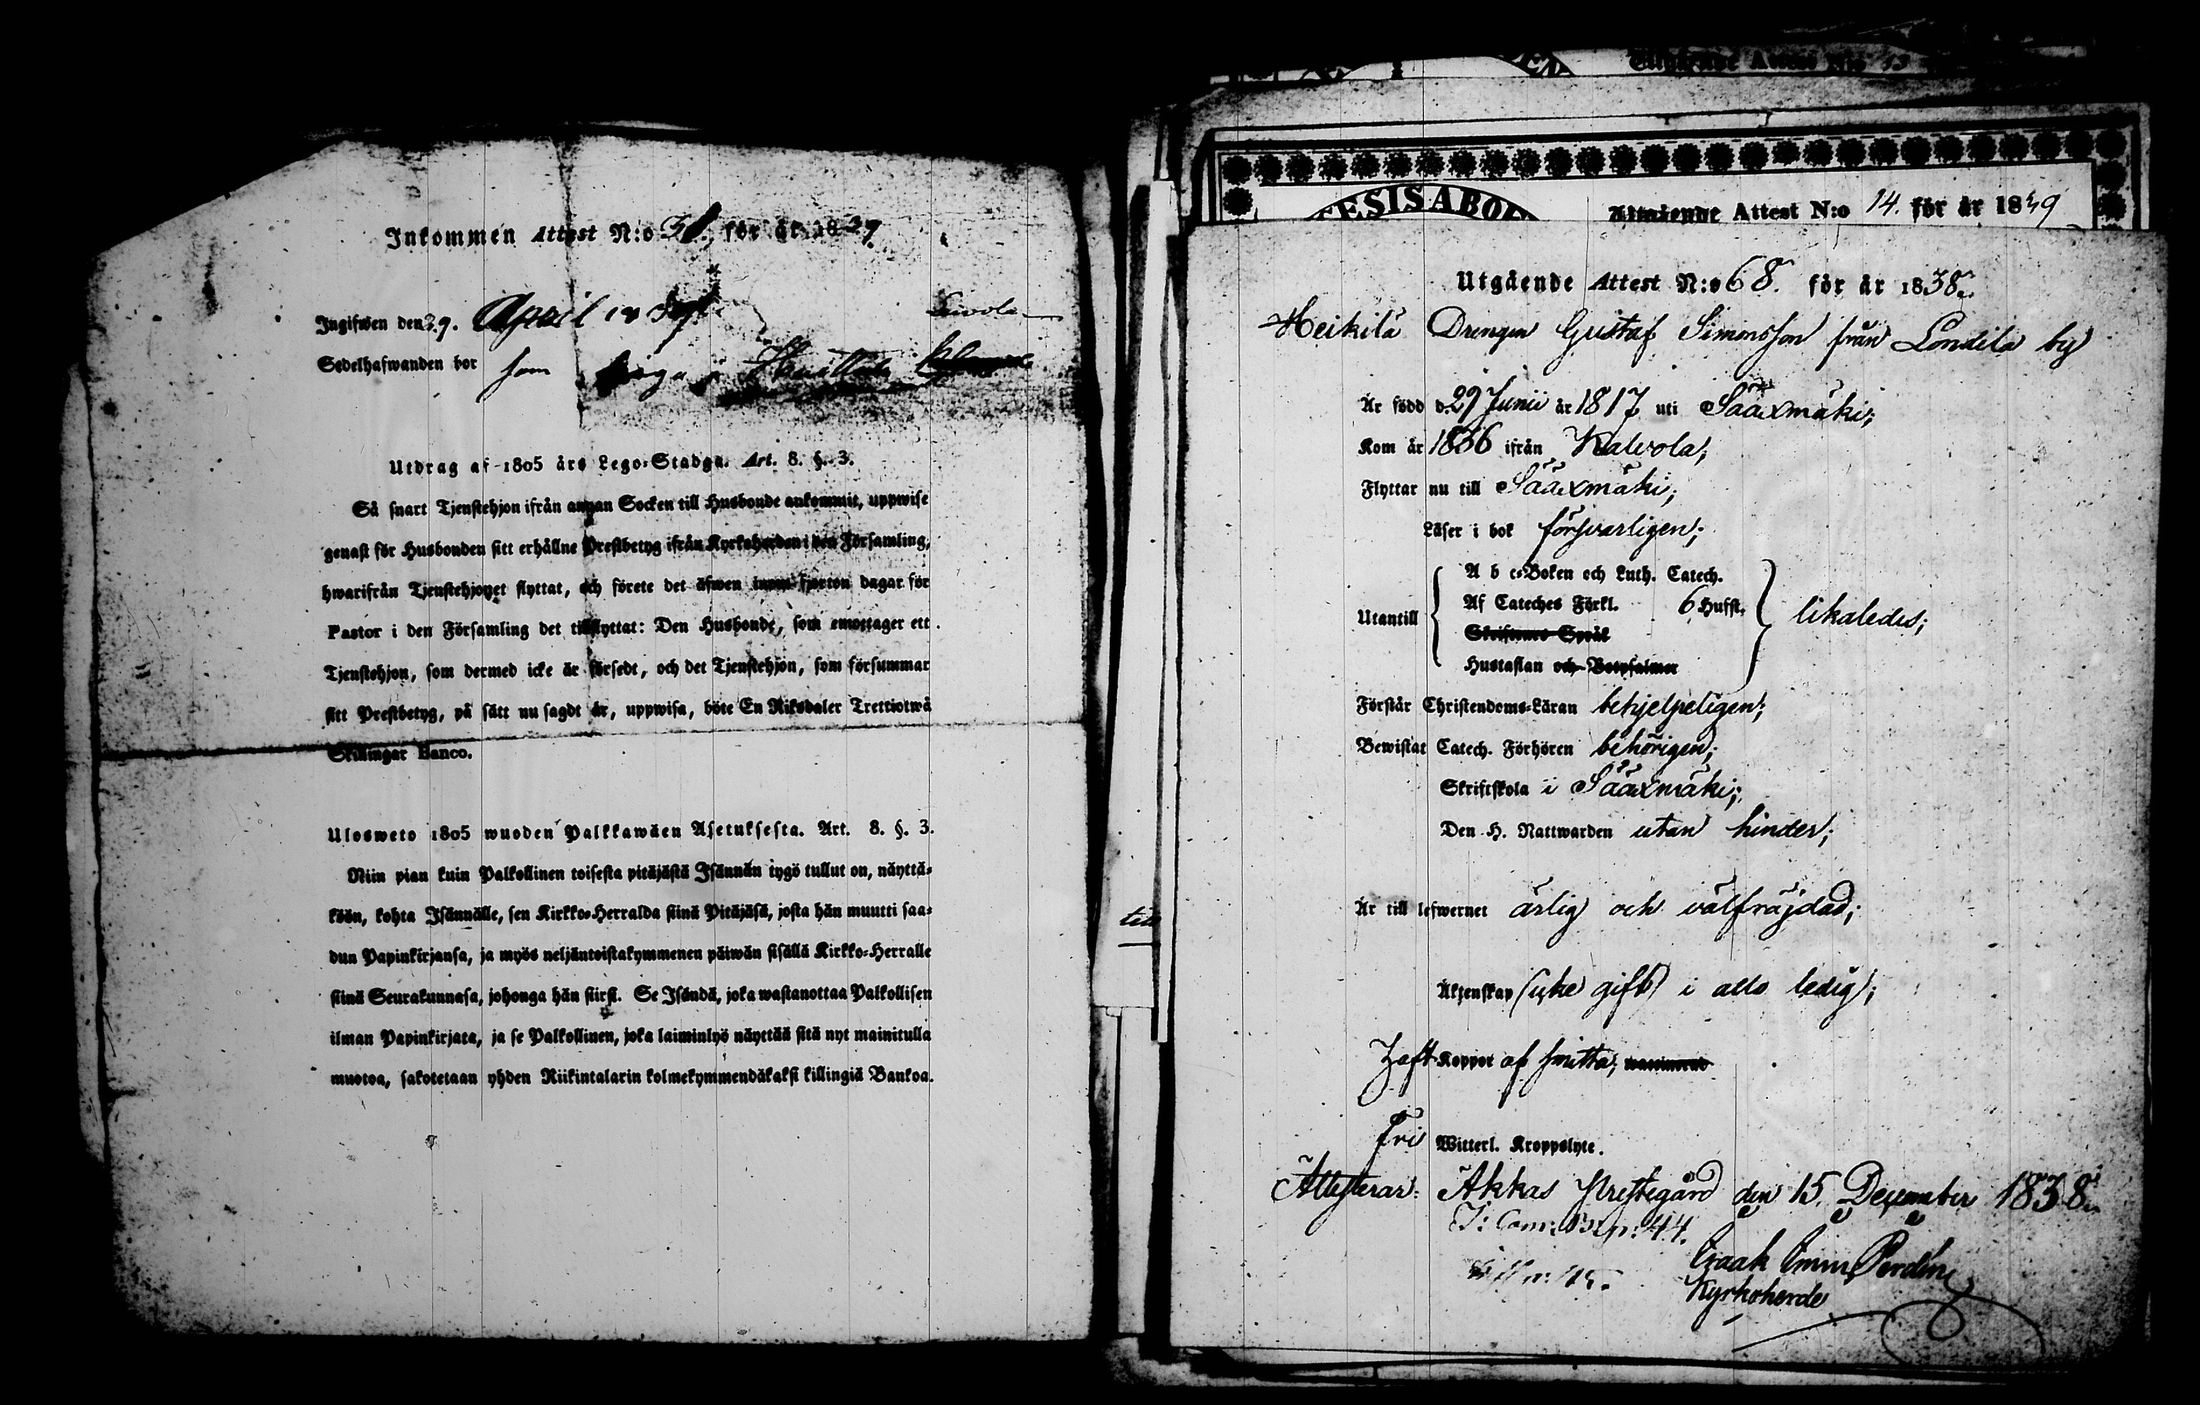 Inkommen Attest N:o för år 1839
Ingifwen den 29. April 1839.
Sedelhafwanden bor som piga
Utdrag af 1805 års Lego-Stadga. Art. 8. §. 3.
Så snart Tjenstehjon ifrån annan Socken till Husbonde ankommit, uppwise
genast för Husbonden sitt erhållne Prestbetyg ifrån Kyrkoherden i den Församling,
hwarifrån Tjenstehjonet flyttat, och förete det äfwen inom fjorton dagar för
Pastor i den Församling det tillflyttat: Den Husbonde, som emottager ett
Tjenstehjon, som dermed icke är försedt, och det Tjenstehjon, som försummar
sitt Prestbetyg, på sätt nu sagdt är, uppwisa, böte En Riksdaler Trettiotwå
Skillingar Banco.
Ulosweto 1805 wuoden Palkkawäen Asetuksesta. Art. 8. §. 3.
Niin pian kuin Palkollinen toisesta pitäjästä Isännän tygö tullut on, näyttä-
köön, kohta Isännälle, sen Kirkko-Herralda siinä Pitäjäsä, josta hän muutti saa-
dun Papinkirjansa, ja myös neljäntoistakymmenen päiwän sisällä Kirkko-Herralle
siinä Seurakunnasa, johonga hän siirsi. Se Isändä, joka wastanottaa Palkollisen
ilman Papinkirjata, ja se Palkollinen, joka laiminlyö näyttää sitä nyt mainitulla
muotoa, sakotetaan yhden Riikintalarin kolmekymmendäkaksi killingiä Bankoa.
Utgående Attest N:o 13
ESIS ABO
Utgående Attest N:o 14. för år 1839
Utgående Attest N:o 68. för år 1838.
Heikilä Drengen Gustaf Simonsson från Londila by
Är född d. 29 Junii år 1817 uti Sääxmäki;
Kom år 1836 ifrån Kalvola;
Flyttar nu till Sääxmäki;
Läser i bok försvarligen;
A b c-Boken och Luth. Catech.
Utantill Af Cateches Förkl. 6 Hufst. likaledes;
Skriftenes Språk
Hustaflan och Botpsalmer
Förstår Christendoms-Läran behjelpeligen;
Bewistat Catech. Förhören behörigen;
Skriftskola i Sääxmäki;
Den H. Nattwarden utan hinder;
Är till lefwernet ärlig och välfräjdad;
Äktenskap (icke gift) i allo ledig;
Haft Koppor af smitta; vaccinerad
Fri Witterl. Kroppslyte.
Attesterar: Akkas Prestegård den 15. December 1838.
Isaak Emin. Perdén
Kyrkoherde